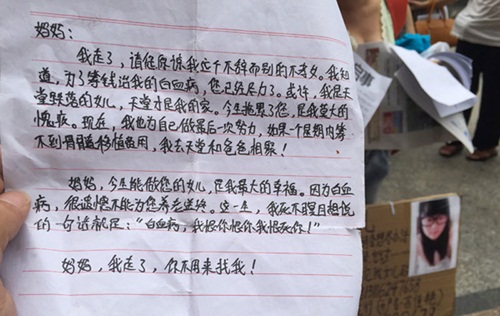 妈妈：
我走了，请您原谅我这个不辞而别的不孝女。我知
道，为了筹钱治我的白血病，您已经尽力了。或许，我是天
堂跌落的女儿，天堂才是我的家。今生拖累了您，是我莫大的
愧疚。现在，我也为自己做最后一次努力，如果一个星期内筹
不到骨髓移植费用，我去天堂和爸爸相聚！
妈妈，今生能做您的女儿，是我最大的幸福。因为白血
病，很遗憾不能为您养老送终。这一生，我死不瞑目想说
的一句话就是：“白血病，我恨你恨你我恨死你！”
妈妈，我走了，你不用来找我！